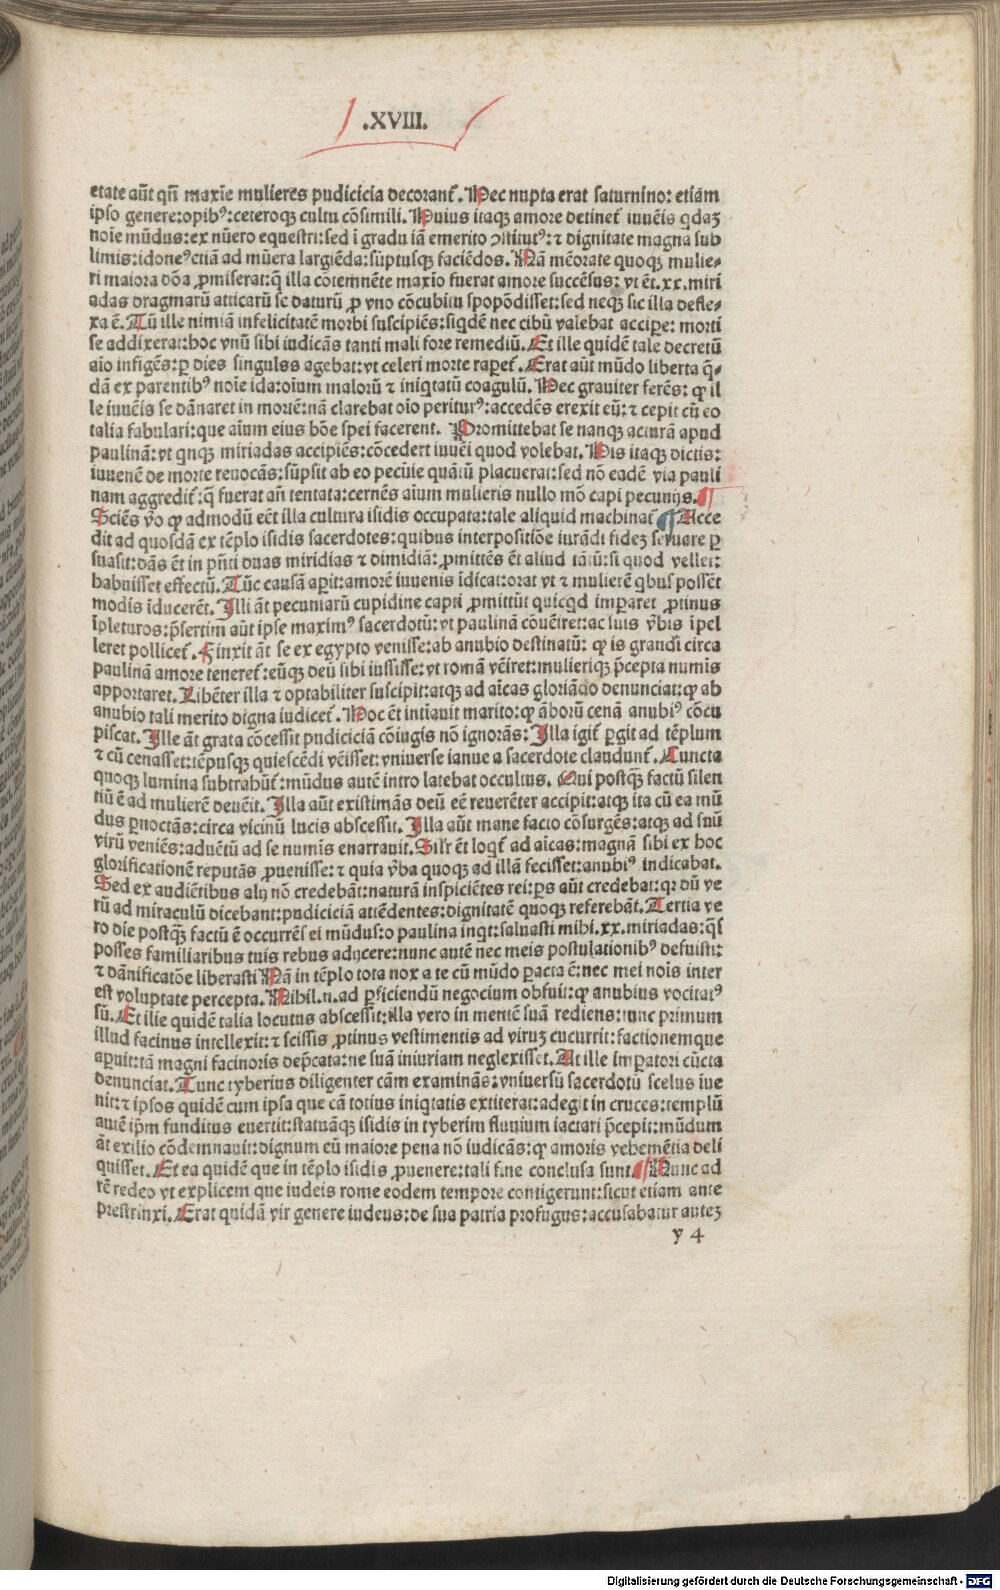 .XVIII.
etate aūt qñ maxīe mulieres pudicicia decorant̄. Hec nupta erat saturnino: etiam
ipso genere: opibꝰ: ceteroqꝫ cultu cōsimili. Huius itaqꝫ amore detinet̄ iuuēis qdaꝫ
noīe mūdus: ex nūero equestri: sed ī gradu iā emerito ꝯstitutꝰ: ⁊ dignitate magna sub
limis: idoneꝰ etiā ad mūera largiēda: sūptusqꝫ faciēdos. Nā mēorate quoqꝫ mulie-
ri maiora dōa ꝓmiserat: ꝙ illa cōtemnēte maxīo fuerat amore succēsus: vt ēt .xx. miri
adas dragmarū atticarū se daturū ꝓ vno cōcubitu spopōdisset: sed neqꝫ sic illa defle-
xa ē. Tū ille nimiā infelicitatē morbi suscipiēs: siqdē nec cibū valebat accipe: morti
se addixerat: hoc vnū sibi iudicās tanti mali fore remediū. Et ille quidē tale decretū
aīo infigēs: ꝑ dies singulss agebat: vt celeri morte rapet̄. Erat aūt mūdo liberta q̄-
dā ex parentibꝰ noīe ida: oīum malorū ⁊ iniqtatū coagulū. Hec grauiter ferēs: ꝙ il
le iuuēis se dānaret in mortē: nā clarebat oīo peritur̄ꝰ: accedēs erexit eū: ⁊ cepit cū eo
talia fabulari: que aīum eius bōe spei facerent. Promittebat se nanqꝫ acturā apud
paulinā: vt qnqꝫ miriadas accipiēs: cōcedert iuuēi quod volebat. His itaqꝫ dictis:
iuuenē de morte reuocās: sūpsit ab eo pecūie quātū placuerat: sed nō eadē via pauli
nam aggredit̄: q̄ fuerat añ tentata: cernēs aīum mulieris nullo mō capi pecunijs.
Sciēs v̄o ꝙ admodū eēt illa cultura isidis occupata: tale aliquid machinat̄ Acce
dit ad quosdā ex tēplo isidis sacerdotes: quibus interpositiōe iurādi fideꝫ seruare ꝑ
suasit: dās ēt in p̄nti duas miridias ⁊ dimidiā: ꝓmittēs ēt aliud tātū: si quod vellet:
habuisset effectū. Tūc causā apit: amorē iuuenis īdicat: orat vt ⁊ mulierē qbus possēt
modis īducerēt. Illi āt pecuniarū cupidine capti ꝓmittūt quicqd imꝑaret ꝓtinus
īpleturos: p̄sertim aūt ipse maximꝰ sacerdotū: vt paulinā cōuēiret: ac suis v̄bis īpel
leret pollicet̄. Finxit āt se ex egypto venisse: ab anubio destinatū: ꝙ is grandi circa
paulinā amore teneret̄: eūqꝫ deū sibi iussisse: vt romā vēiret: mulieriqꝫ p̄cepta numīs
apportaret. Libēter illa ⁊ optabiliter suscipit: atqꝫ ad aīcas gloriādo denunciat: ꝙ ab
anubio tali merito digna iudicet̄. Hoc ēt intīauit marito: ꝙ āborū cenā anubiꝰ cōcu
piscat. Ille āt grata cōcessit pudiciciā cōiugis nō ignorās: Illa igit̄ ꝑgit ad tēplum
⁊ cū cenasset: tēpusqꝫ quiescēdi vēisset: vniuerse ianue a sacerdote claudunt̄. Cuncta
quoqꝫ lumina subtrahūt̄: mūdus autē intro latebat occultus. Qui postqꝫ factū silen
tiū ē ad mulierē deuēit. Illa aūt existimās deū eē reuerēter accipit: atqꝫ ita cū ea mū
dus ꝑnoctās: circa vicinū lucis abscessit. Illa aūt mane facto cōsurgēs: atqꝫ ad suū
virū veniēs: aduētū ad se numīs enarrauit. Silr ēt loqt̄ ad aīcas: magnā sibi ex hoc
glorificationē reputās ꝓuenisse: ⁊ quia v̄ba quoqꝫ ad illā fecisset: anubiꝰ indicabat.
Sed ex audiētibus alij nō credebāt: naturā inspiciētes rei: ꝑs aūt credebat: qꝛ dū ve
rū ad miraculū dicebant: pudiciciā attēdentes: dignitatē quoqꝫ referebāt. Tertia ve
ro die postqꝫ factū ē occurrēs ei mūdus: o paulina inqt: saluasti mihi .xx. miriadas: q̄s
posses familiaribus tuis rebus adijcere: nunc autē nec meis postulationibꝰ defuisti:
⁊ dānificatōe liberasti Nā in tēplo tota nox a te cū mūdo ꝑacta ē: nec mei noīs inter
est voluptate percepta. Nihil .n. ad ꝑficiendū negocium obfuit: ꝙ anubius vocitatꝰ
sū. Et ille quidē talia locutus abscessit: illa vero in mentē suā rediens: tunc primum
illud facinus intellexit: ⁊ scissis ꝓtinus vestimentis ad viruꝫ cucurrit: factionemque
aꝑuit: tā magni facinoris dep̄cata: ne suā iniuriam neglexisset. At ille imꝑatori cūcta
denunciat. Tunc tyberius diligenter cām examinās: vniuersū sacerdotū scelus iue
nit: ⁊ ipsos quidē cum ipsa que cā totius iniqtatis extiterat: adegit in cruces: templū
autē ip̄m funditus euertit: statuāqꝫ isidis in tyberim fluuium iactari p̄cepit: mūdum
āt exilio cōdemnauit: dignum eū maiore pena nō iudicās: ꝙ amoris vehemētia deli
quisset. Et ea quidē que in tēplo isidis ꝓuenere: tali fine conclusa sunt. Nunc ad
rē redeo vt explicem que iudeis rome eodem tempore contigerunt: sicut etiam ante
prestrinxi. Erat quidā vir genere iudeus: de sua patria profugus: accusabatur auteꝫ
y 4
Digitalisierung gefördert durch die Deutsche Forschungsgemeinschaft - DFG